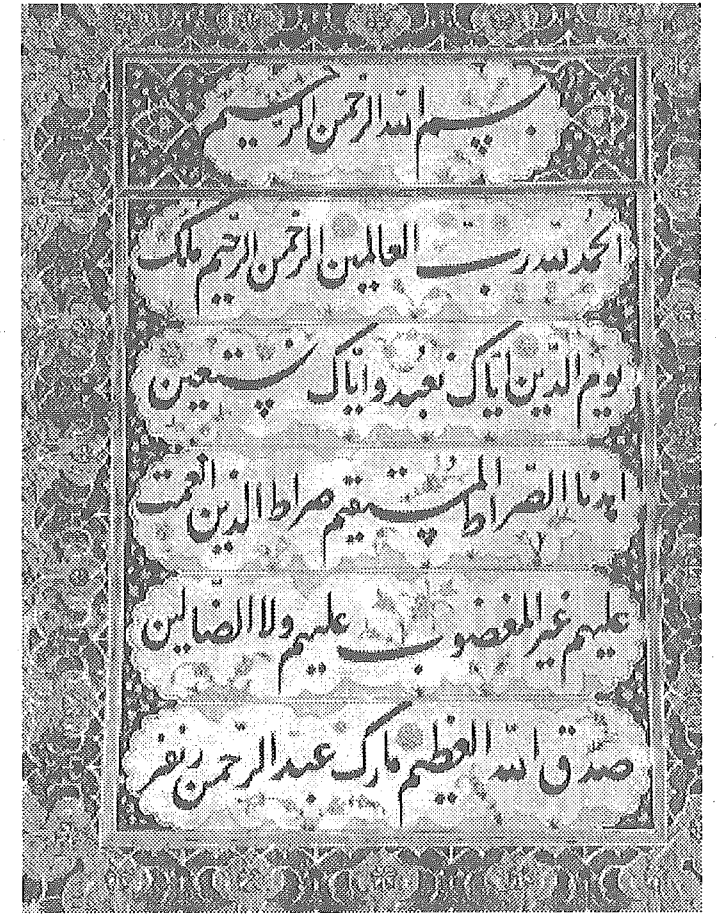 بسم الله الرحمن الرحيم
الحمد لله رب العالمين الرحمن الرحيم مالك
يوم الدين اياك نعبد واياك نستعين
اهدنا الصراط المستقيم صراط الذين انعمت
عليهم غير المغضوب عليهم ولا الضالين
صدق الله العظيم مارك عبد الرحمن